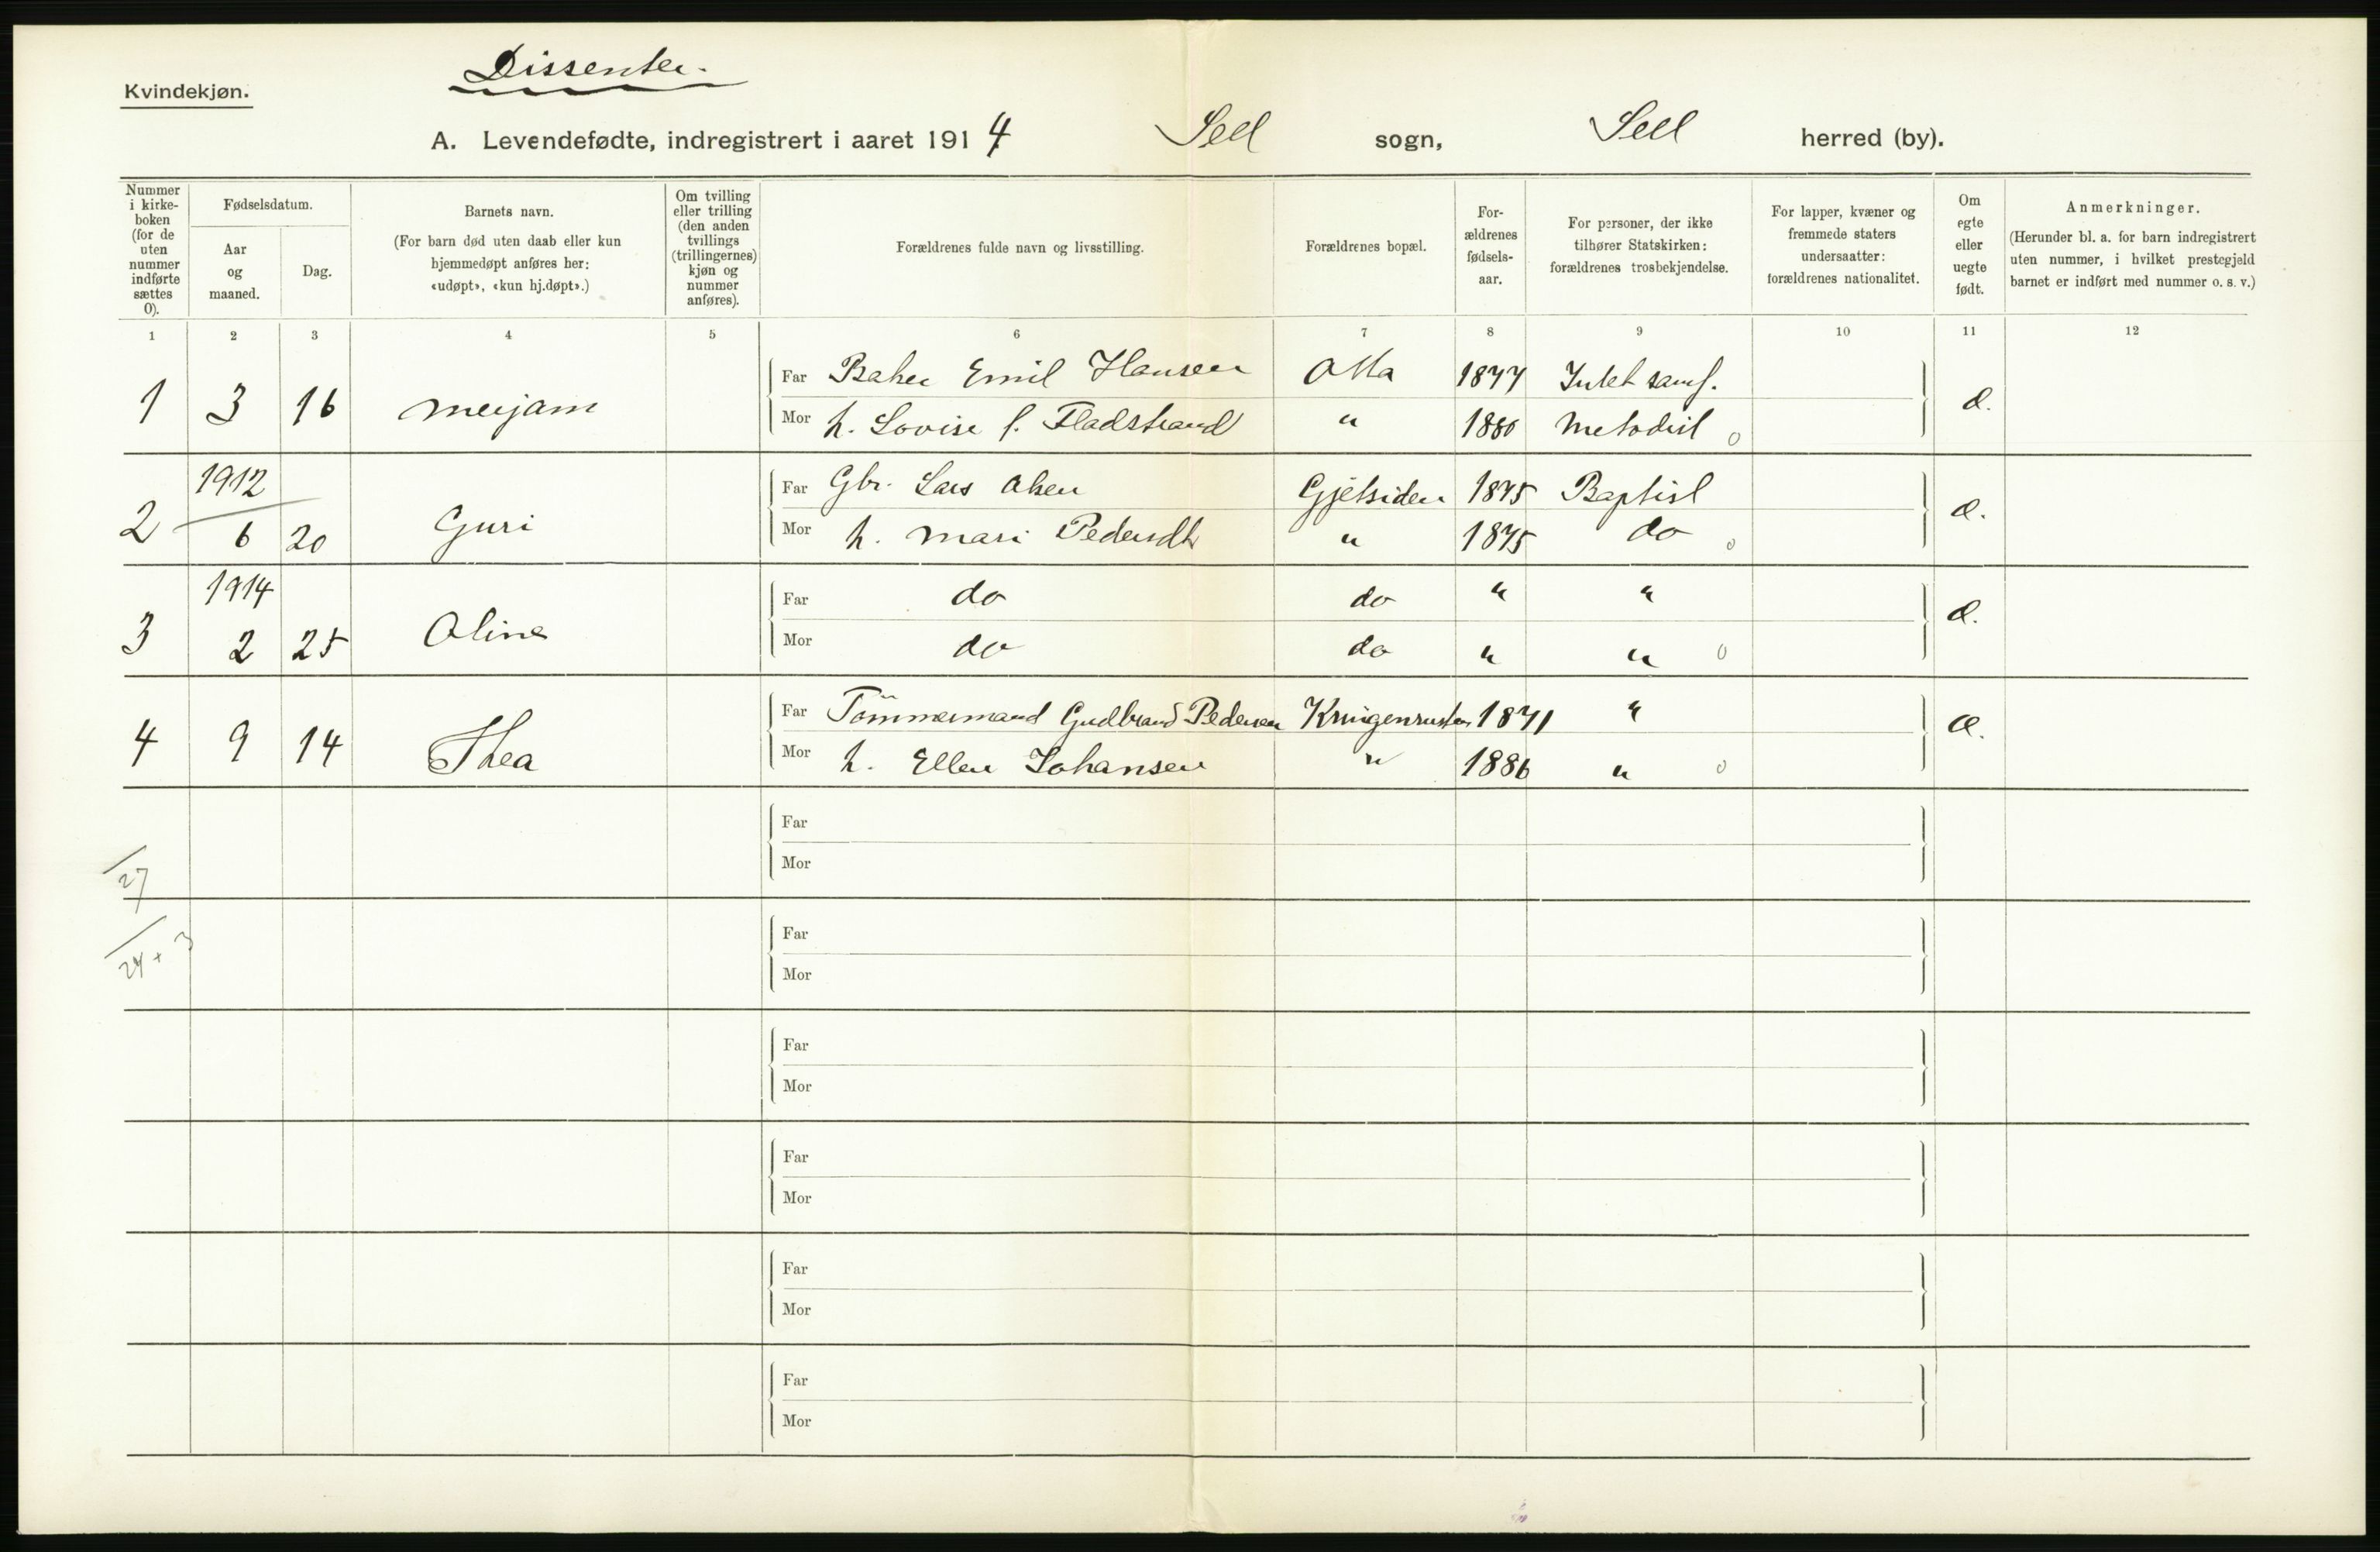 Kvindekjøn.
Dissenter.
A. Levendefødte, indregistrert i aaret 1914 Sell sogn, Sell herred (by).
Nummer i kirke-boken (for de uten nummer indførte sættes 0).
Fødselsdatum.
Aar og maaned.
Dag.
Barnets navn.
(For barn død uten daab eller kun hjemmedøpt anføres her: «udøpt», «kun hj.døpt».)
Om tvilling eller trilling (den anden tvillings (trillingernes) kjøn og nummer anføres).
Forældrenes fulde navn og livsstilling.
Forældrenes bopæl.
For-ældrenes fødsels-aar.
For personer, der ikke tilhører Statskirken: forældrenes trosbekjendelse.
For lapper, kvæner og fremmede staters undersaatter: forældrenes nationalitet.
Om egte eller uegte født.
Anmerkninger.
(Herunder bl. a. for barn indregistrert uten nummer, i hvilket prestegjeld barnet er indført med nummer o. s. v.)
1 2 3 4 5 6 7 8 9 10 11 12
1 3 16 Merjam
Far Baker Emil Hansen Otta 1877 Intet samf.
Mor h. Lovise f. Fladstrand " 1880 Metodist 0
2 1912 6 20 Guri
Far Gbr. Lars Olsen Gjetsiden 1875 Baptist
Mor h. Mari Pedersdtr " 1875 do 0
3 1914 2 25 Oline
Far do do " "
Mor do do " " 0
4 9 14 Thea
Far Tömmermand Gudbrand Pedersen 1871 "
Mor h. Ellen Johansen " 1886 " 0
Far
Mor
27
Far
Mor
24 + 3
Far
Mor
Far
Mor
Far
Mor
Far
Mor